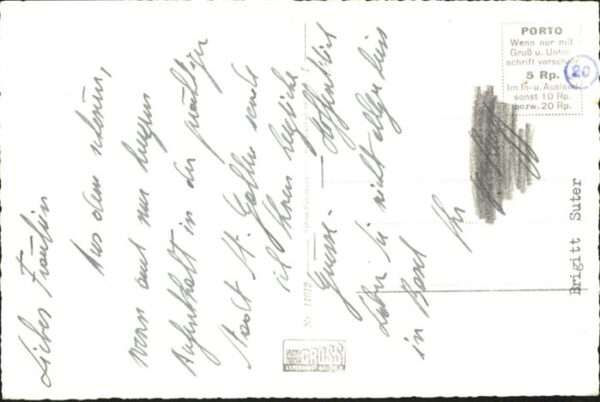 Liebes Fräulein
Aus dem schönen,
wenn auch nur kurzen
Aufenthalt in der prächtigen
Stadt St. Gallen sende
ich Ihnen herzliche
Grüsse. — Hoffentlich
haben Sie nicht allzu heiss
in Basel
Ihr
PORTO
Wenn nur mit
Gruß u. Unter-
schrift versehen
5 Rp.
Im In- u. Ausland
sonst 10 Rp.
bezw. 20 Rp.
20
Brigitt Suter
Nr. 11012
GROSS